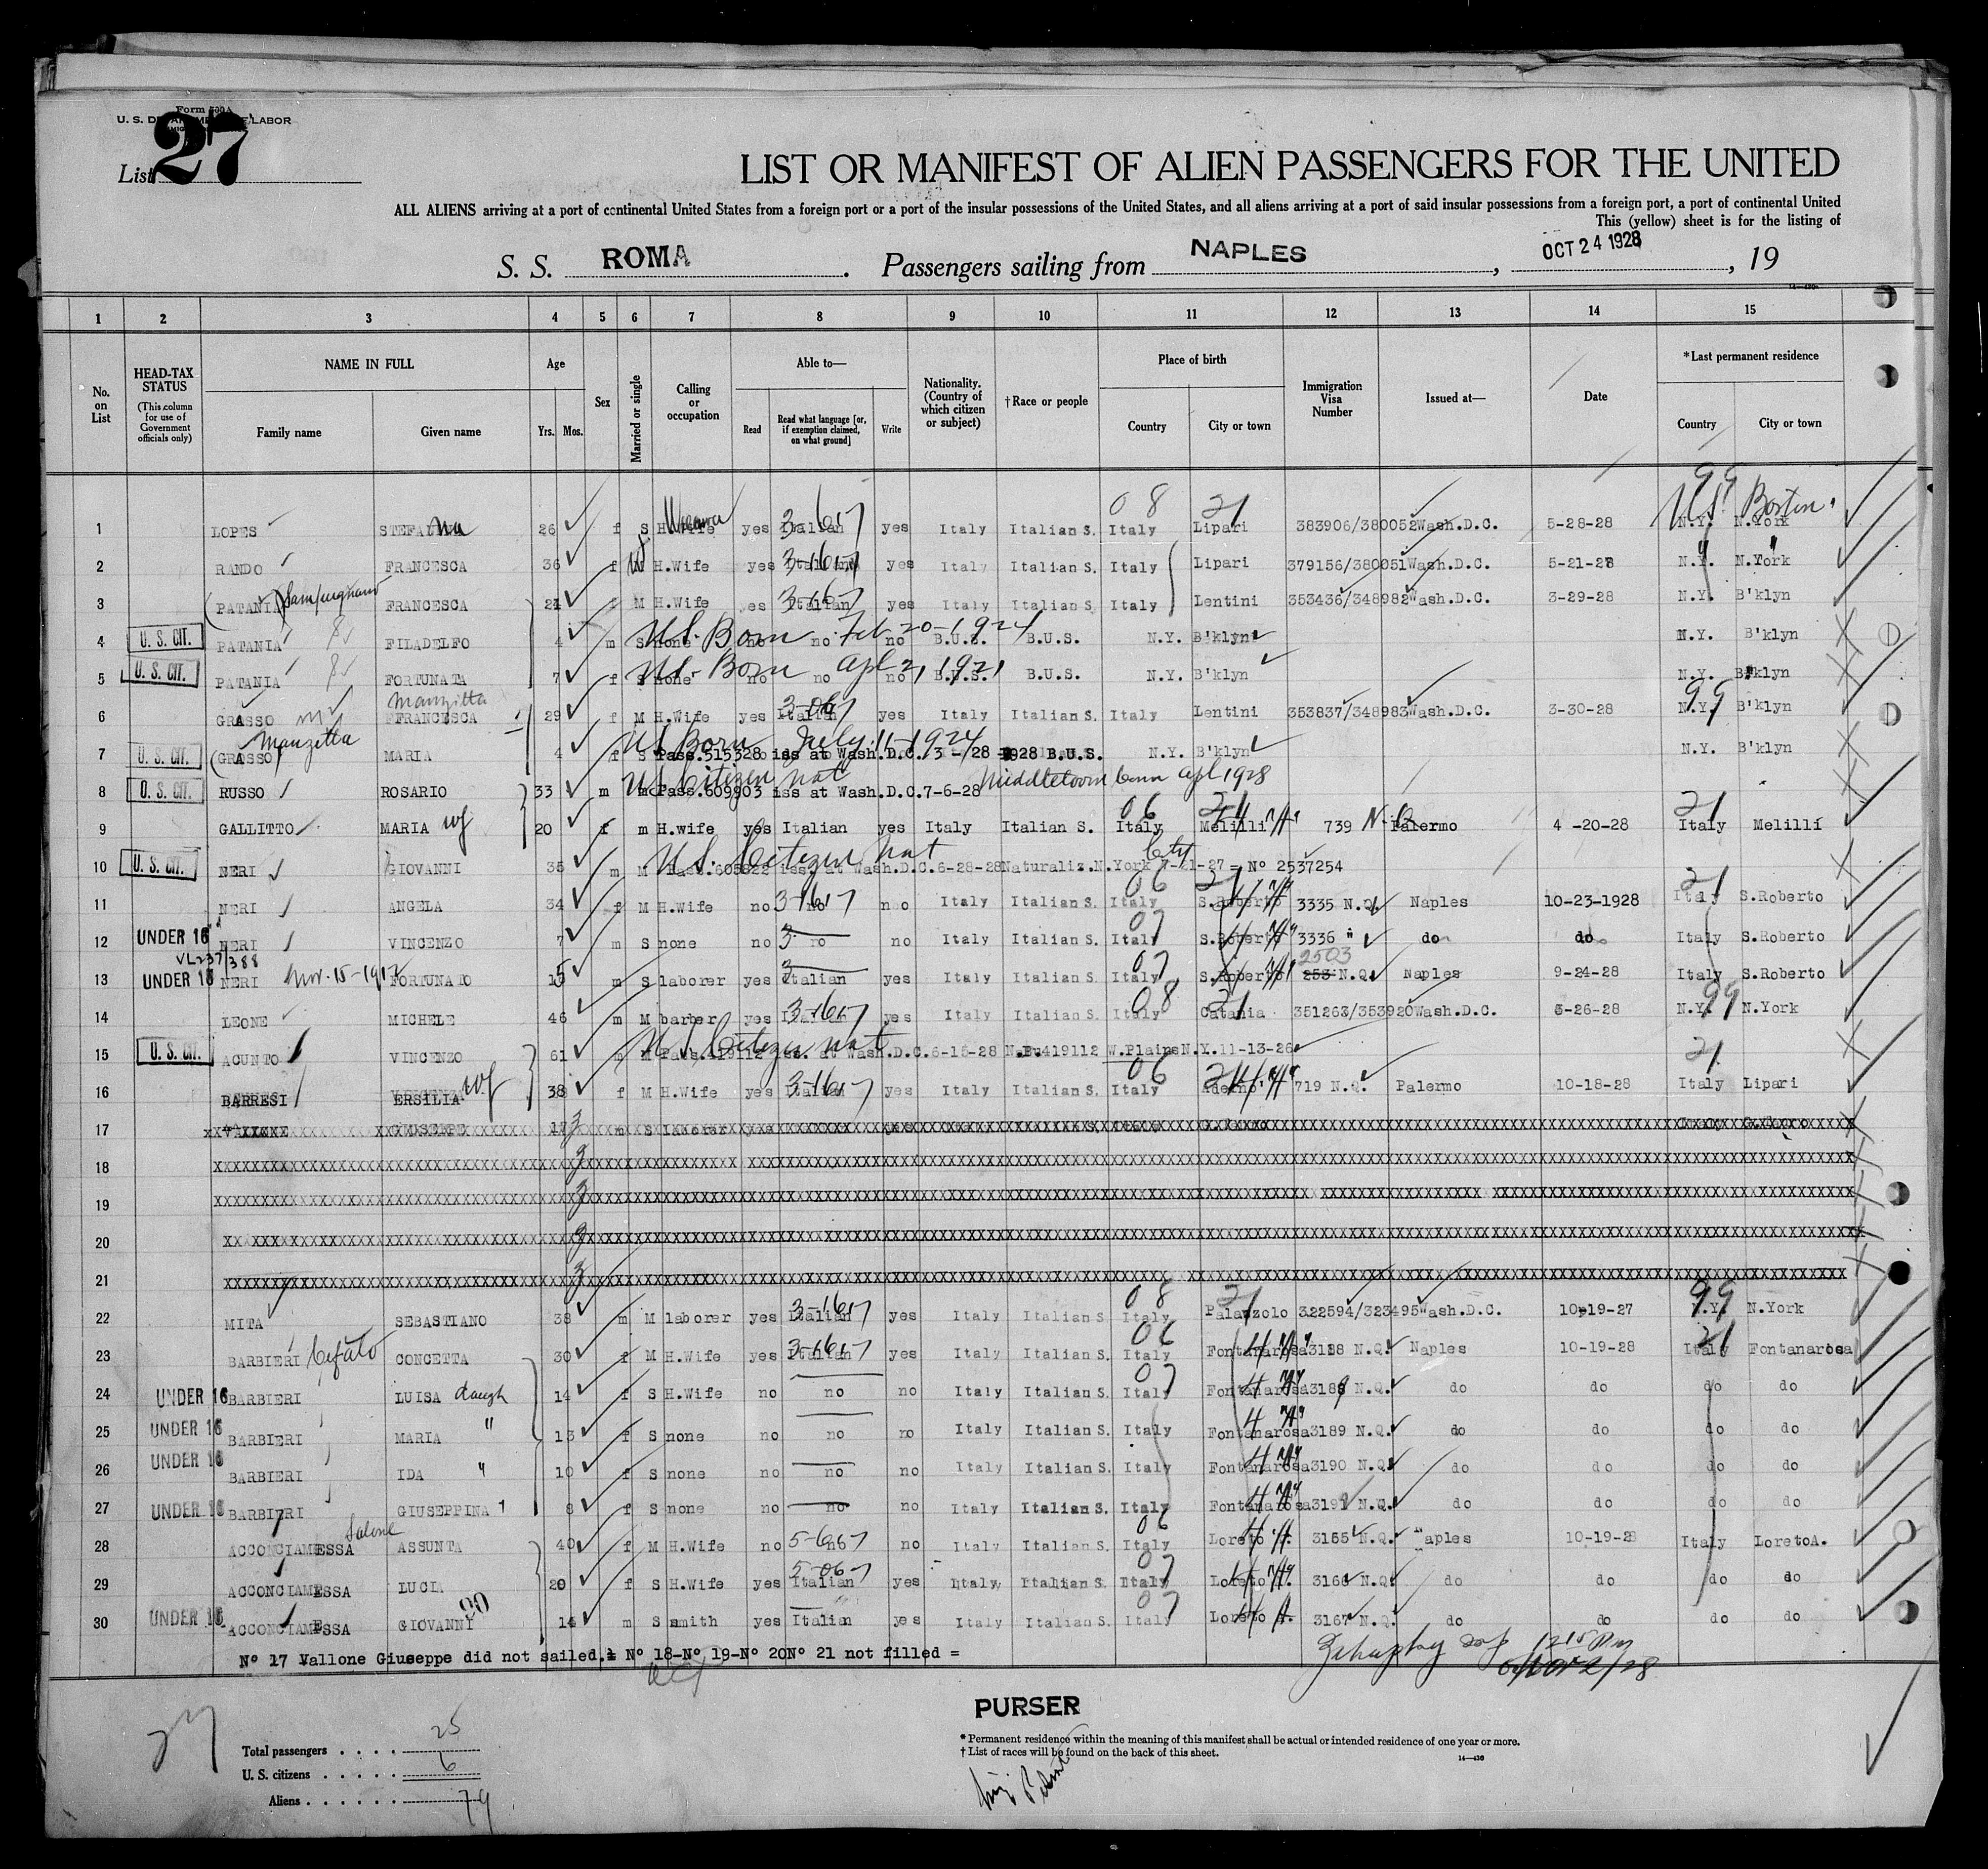 Form 500A
U. S. DEPARTMENT OF LABOR
List 27
LIST OR MANIFEST OF ALIEN PASSENGERS FOR THE UNITED
ALL ALIENS arriving at a port of continental United States from a foreign port or a port of the insular possessions of the United States, and all aliens arriving at a port of said insular possessions from a foreign port, a port of continental United
This (yellow) sheet is for the listing of
S. S. ROMA. Passengers sailing from NAPLES, OCT 24 1928, 19
14-430
1 2 3 4 5 6 7 8 9 10 11 12 13 14 15
No. on List
HEAD-TAX STATUS (This column for use of Government officials only)
NAME IN FULL Family name Given name
Age Yrs. Mos.
Sex
Married or single
Calling or occupation
Able to— Read Read what language [or, if exemption claimed, on what ground] Write
Nationality. (Country of which citizen or subject)
†Race or people
Place of birth Country City or town
Immigration Visa Number
Issued at—
Date
*Last permanent residence Country City or town
08 21 99 U.S. Boston
1 LOPES STEFANA 26 f S H.Wife yes Italian yes Italy Italian S. Italy Lipari 383906/380052 Wash.D.C. 5-28-28 N.Y. N.York
2 RANDO FRANCESCA 36 f H.Wife yes Italian yes Italy Italian S. Italy Lipari 379156/380051 Wash.D.C. 5-21-28 N.Y. N.York
3 (PATANIA) FRANCESCA 24 f M H.Wife yes Italian yes Italy Italian S. Italy Lentini 353436/348982 Wash.D.C. 3-29-28 N.Y. B'klyn
4 U. S. CIT. PATANIA FILADELFO 4 m S none no no no B.U.S. B.U.S. N.Y. B'klyn N.Y. B'klyn
U.S. Born Feb 20-1924
5 U. S. CIT. PATANIA FORTUNATA 7 f S none no no no B.U.S. B.U.S. N.Y. B'klyn N.Y. B'klyn
U.S. Born Apl 2, 1921
Manzitta
6 GRASSO FRANCESCA 29 f M H.Wife yes Italian yes Italy Italian S. Italy Lentini 353837/348983 Wash.D.C. 3-30-28 N.Y. B'klyn
99
Manzitta
7 U. S. CIT. (GRASSO) MARIA 4 f S Pass.515328 iss at Wash.D.C. 3- /28 1928 B.U.S. N.Y. B'klyn N.Y. B'klyn
US Born July 11-1924
8 U. S. CIT. RUSSO ROSARIO 33 m m Pass.609903 iss at Wash.D.C.7-6-28
US Citizen nat Middletown Conn Apl 1928
06 21 21
9 GALLITTO MARIA wf 20 f m H.wife yes Italian yes Italy Italian S. Italy Melilli 739 N.Q. Palermo 4 -20-28 Italy Melilli
10 U. S. CIT. NERI GIOVANNI 35 m M Pass.605822 iss. at Wash.D.C.6-28-28 Naturaliz.N.York 7-21-27= No 2537254
U.S. Citizen Nat City
06 21 21
11 NERI ANGELA 34 f M H.Wife no no no Italy Italian S. Italy S.Roberto 3335 N.Q. Naples 10-23-1928 Italy S.Roberto
12 UNDER 16 NERI VINCENZO 7 m S none no no no Italy Italian S. Italy S.Roberto 3336 " do do Italy S.Roberto
VL237/388 07 2503
13 UNDER 16 NERI Nov. 15-1912 FORTUNATO 15 m S laborer yes Italian yes Italy Italian S. Italy S.Roberto 253 N.Q. Naples 9-24-28 Italy S.Roberto
08 21 99
14 LEONE MICHELE 46 m M barber yes Italian yes Italy Italian S. Italy Catania 351263/353920 Wash.D.C. 3-26-28 N.Y. N.York
15 U. S. CIT. ACUNTO VINCENZO 61 m M Pass.419112 iss. at Wash.D.C.6-15-28 N.Bu419112 W.Plains N.Y.11-13-26
U S Citizen nat 21
16 BARRESI ERSILIA wf 38 f M H.Wife yes Italian yes Italy Italian S. Italy Aderno 719 N.Q. Palermo 10-18-28 Italy Lipari
17 VALLONE GIUSEPPE 17 m S laborer
18
19
20
21
08 21 99
22 MITA SEBASTIANO 38 m M laborer yes Italian yes Italy Italian S. Italy Palazzolo 322594/323495 Wash.D.C. 10-19-27 N.Y. N.York
06 21
23 BARBIERI Cefalo CONCETTA 30 f M H.Wife yes Italian yes Italy Italian S. Italy Fontanarosa 3188 N.Q. Naples 10-19-28 Italy Fontanarosa
24 UNDER 16 BARBIERI LUISA daugh 14 f S H.Wife no no no Italy Italian S. Italy Fontanarosa 3189 N.Q. do do do do
25 UNDER 16 BARBIERI MARIA " 13 f S none no no no Italy Italian S. Italy Fontanarosa 3189 N.Q. do do do do
26 UNDER 16 BARBIERI IDA " 10 f S none no no no Italy Italian S. Italy Fontanarosa 3190 N.Q. do do do do
27 UNDER 16 BARBIERI GIUSEPPINA 8 f S none no no no Italy Italian S. Italy Fontanarosa 3191 N.Q. do do do do
28 ACCONCIAMESSA ASSUNTA 40 f M H.Wife no no no Italy Italian S. Italy Loreto A. 3165 N.Q. Naples 10-19-28 Italy LoretoA.
29 ACCONCIAMESSA LUCIA 20 f S H.Wife yes Italian yes Italy Italian S. Italy Loreto A. 3166 N.Q. do do do do
30 UNDER 16 ACCONCIAMESSA GIOVANNI 14 m S smith yes Italian yes Italy Italian S. Italy Loreto A. 3167 N.Q. do do do do
No 17 Vallone Giuseppe did not sailed. No 18-No 19-No 20 No 21 not filled =
1215 Pm
Nov 2/28
27
PURSER
Total passengers . . . . 25
U. S. citizens . . . . . 6
Aliens . . . . . . 19
* Permanent residence within the meaning of this manifest shall be actual or intended residence of one year or more.
† List of races will be found on the back of this sheet.
14-430